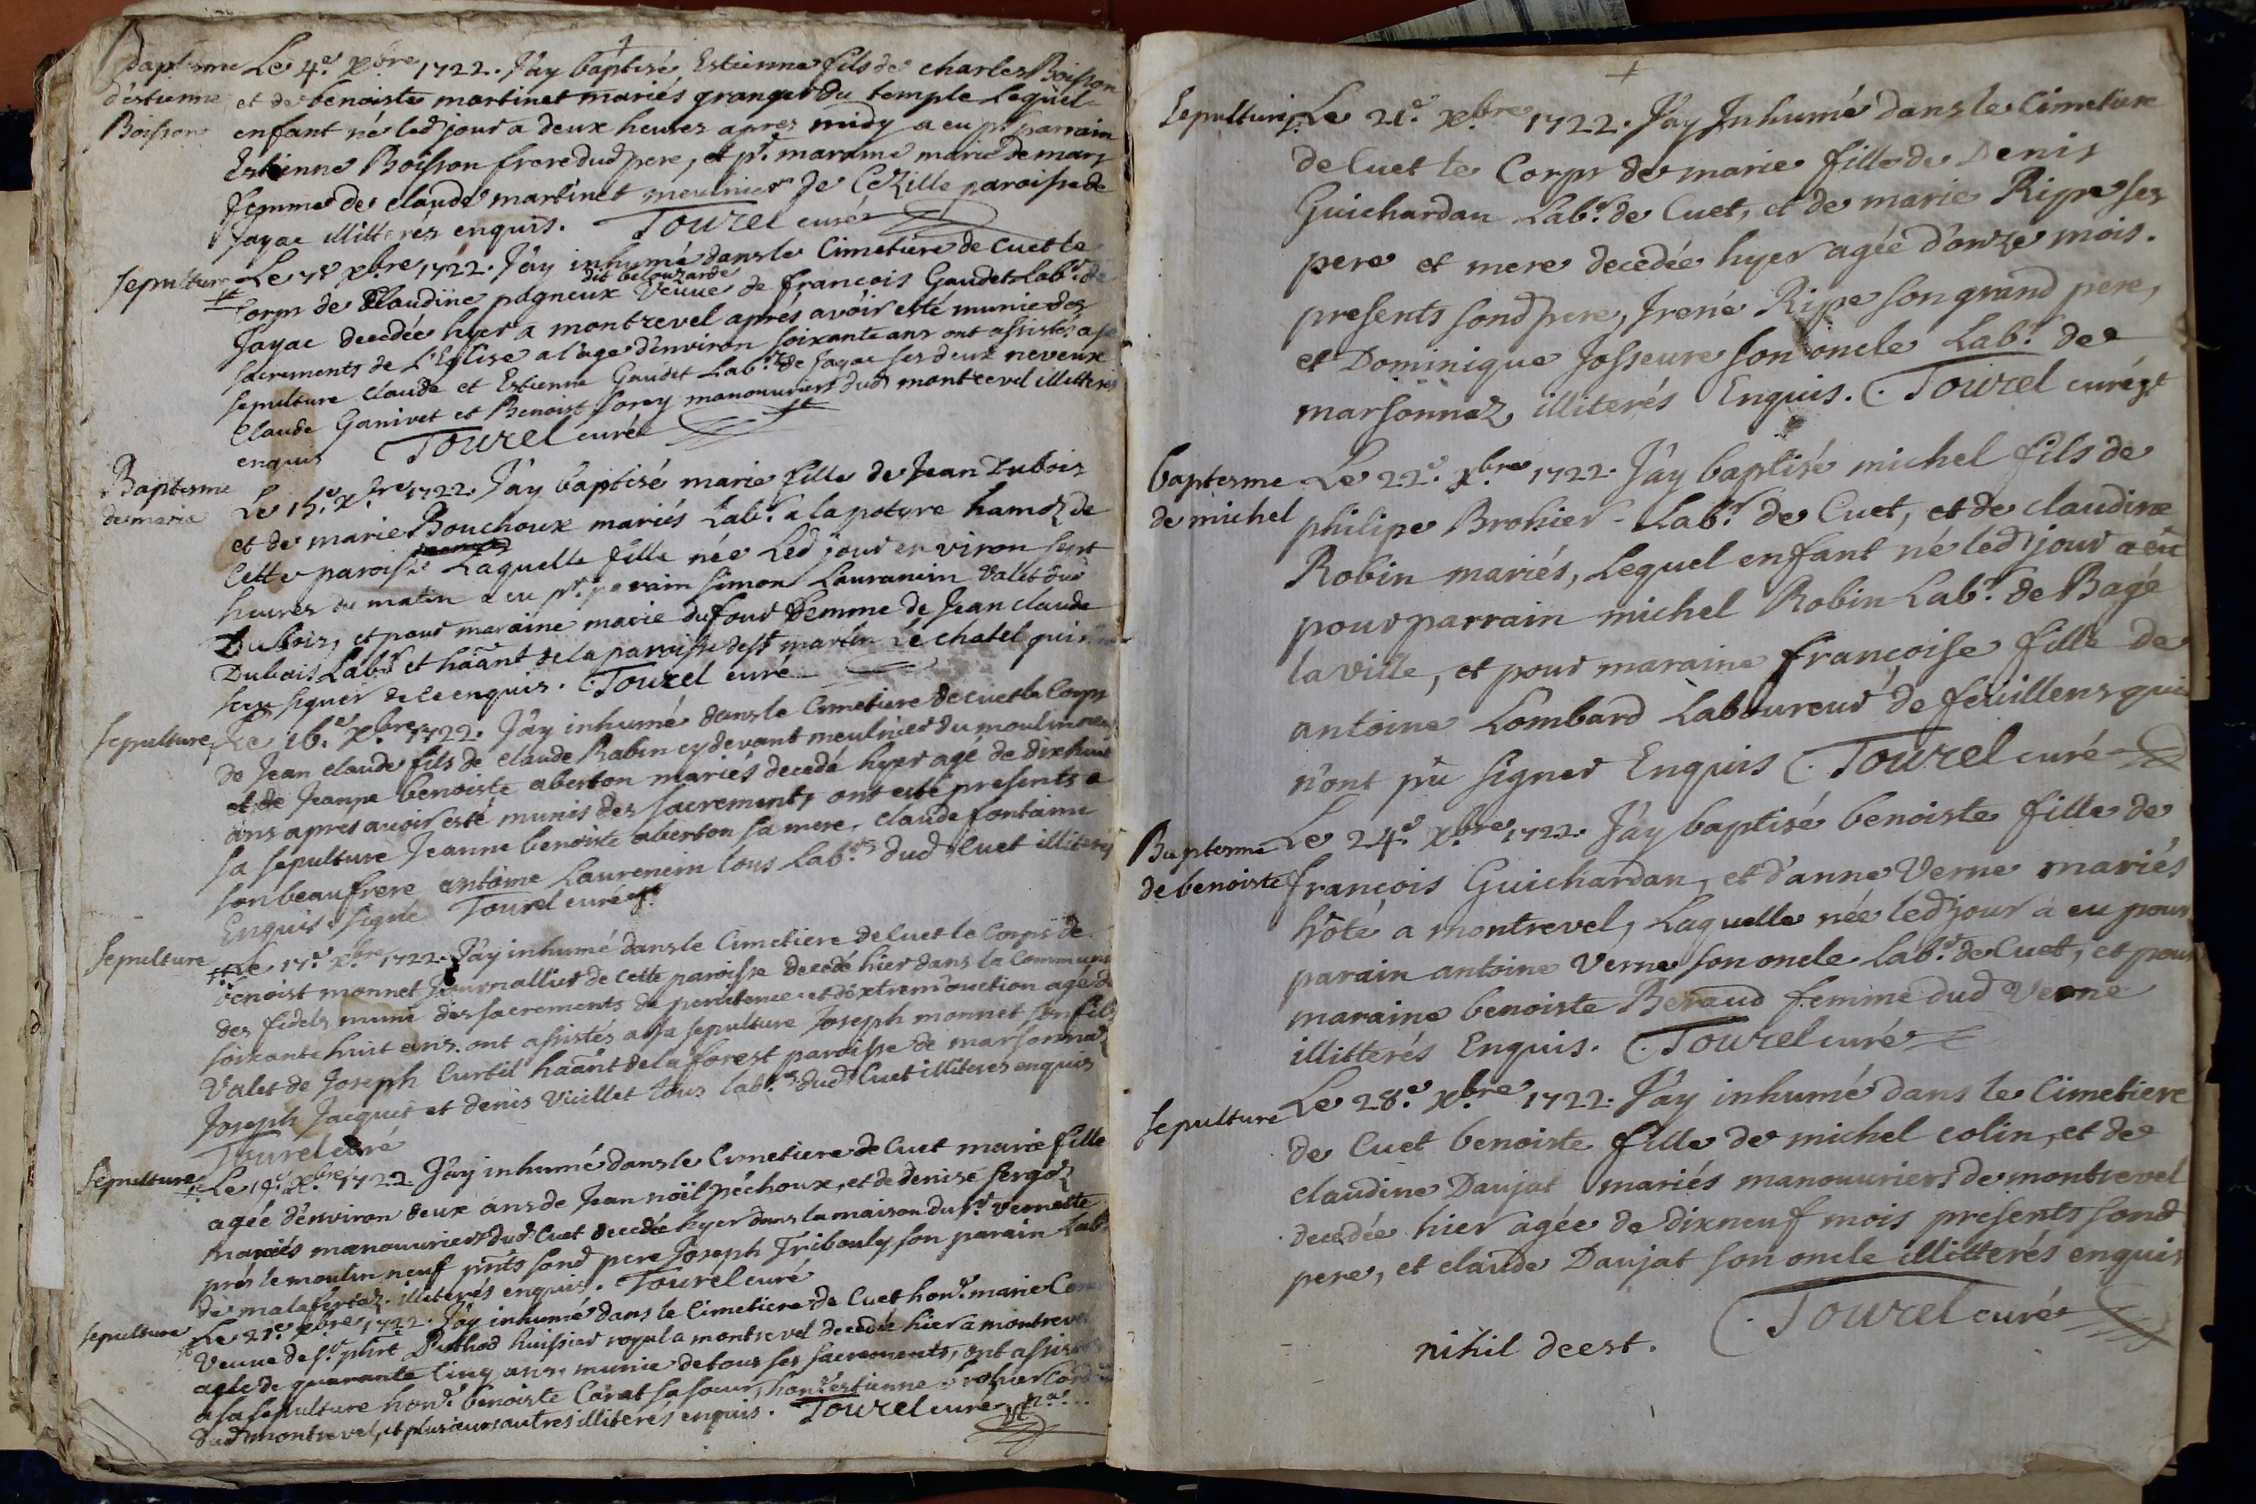 Baptesme
d'estienne
Boisson
Le 4.e xbre 1722. J'ay baptisé Estienne fils de charles Boisson
et de benoiste martinet mariés granger du temple Lequel
enfant né led jour a deux heures apres midy a eu pr parrain
Estienne Boisson frere dud pere, et pr. maraine marie demarz
femme de claude martinet meulnier de Cezille paroisse de
Jayac illitterés enquis. Tourel curé
sepulture
Le 7e xbre 1722. J'ay inhumé dans le Cimetiere de Cuet le
dit belouzarde
Corps de Claudine pagneux Veuve de francois Gaudet Labr. de
Jayac decedée hyer a montrevel aprés avoir esté munie des
sacrements de L'Eglise a l'age d'environ soixante ans ont assistés a sa
sepulture claude et Estienne Gaudet Labrs de Jayac ses deux neveux
Claude Ganivet et Benoist Sorey manouvriers dud montrevel illitterés
enquis Tourel curé
Baptesme
de marie
Le 15.e xbre 1722. J'ay baptisé marie fille de Jean Dubois
et de marie Bouchoux mariés Labr. a la poture hamoz de
Cette paroisse Laquelle fille née Led jour environ sept
heures du matin a eu pr. parain simon Lauranein Valet dud
Dubois, et pour maraine marie dufour femme de Jean claude
Dubois Labr et häänt de la paroisse de st martin Le chatel qui
sceu signer de ce enquis. Tourel curé
sepulture
Le 16.e xbre 1722. J'ay inhumé dans le Cimetiere de Cuet le Corps
de Jean claude fils de claude Rabin cy devant meulnier du moulin
et de Jeanne benoiste aberton mariés decedé hyer agé de dix huit
ans apres avoir esté munis des sacrements, ont esté presents a
sa sepulture Jeanne benoiste aberton sa mere, claude fontaine
son beau frere antoine Laurenein tous Labrs dud Cuet illiterés
Enquis. signé Tourel curé
sepulture
Le 17.e xbre 1722. J'ay inhumé dans le Cimetiere de Cuet le Corps de
benoist monnet Journallier de Cette paroisse decedé hier dans la Communion
des fidels muni des sacrements de penitence et d'extremonction agé de
soixante huit ans. ont assistés a sa sepulture Joseph monnet son fils
Valet de Joseph Curtil häänt de la forest paroisse de marsonnaz
Joseph Jacquet et denis Vuillet tous labrs dud Cuet illiteres enquis
Tourel curé
sepulture
Le 19.e xbre 1722 J'ay inhumé dans le Cimetiere de Cuet marie fille
agée d'environ deux ans de Jean noïl péchoux, et de denise sergoz
mariés manouvriers dud Cuet decedée hyer dans la maison du sr. Vernette
prés le moulin neuf pnts sond pere Joseph Tribouly son parain Labr
de malafretaz. illiterés enquis. Tourel curé
sepulture
Le 21.e xbre 1722. J'ay inhumé dans le Cimetiere de Cuet hon.e marie
Veuve de sr. phrt Puthod huissier royal a montrevel decedée hier a montrevel
agée de quarante cinq ans, munie de tous ses sacrements, ont assistés
a sa sepulture hon.e benoiste Carat sa soeur, hon.e estienne
dud montrevel, et plusieurs autres illiterés enquis. Tourel curé
Sepulture
Le 21.e xbre 1722. J'ay Inhumé dans le Cimetiere
de Cuet le Corps de marie fille de Denis
Guichardan Labr. de Cuet, et de marie Ripe ses
pere et mere decedée hyer agée d'onze mois.
presents sond pere, Irené Ripe son grand pere,
et Dominique Josseure son oncle Labr. de
marsonnaz illiterés Enquis. Tourel curé
baptesme
de michel
Le 22.e xbre 1722. J'ay baptisé michel fils de
philipe Brohier Labr. de Cuet, et de claudine
Robin mariés, Lequel enfant né led jour a eü
pour parrain michel Robin Labr. de Bagé
la ville, et pour maraine françoise fille de
antoine Lombard Laboureur de feüillens qui
n'ont pü signer Enquis Tourel curé
Baptesme
de benoiste
Le 24.e xbre 1722. J'ay baptisé benoiste fille de
françois Guichardan, et d'anne Verne mariés
hôte a montrevel, Laquelle née led jour a eu pour
parain antoine Verne son oncle labr. de Cuet, et pour
maraine benoiste Beraud femme dud Verne
illitterés Enquis. Tourel curé
sepulture
Le 28.e xbre 1722. J'ay inhumé dans le Cimetiere
de Cuet benoiste fille de michel colin, et de
claudine Daujat mariés manouuriers de montrevel
decedée hier agée de dixneuf mois presents sond
pere, et claude Daujat son oncle illitterés enquis
Tourel curé
nihil deest.